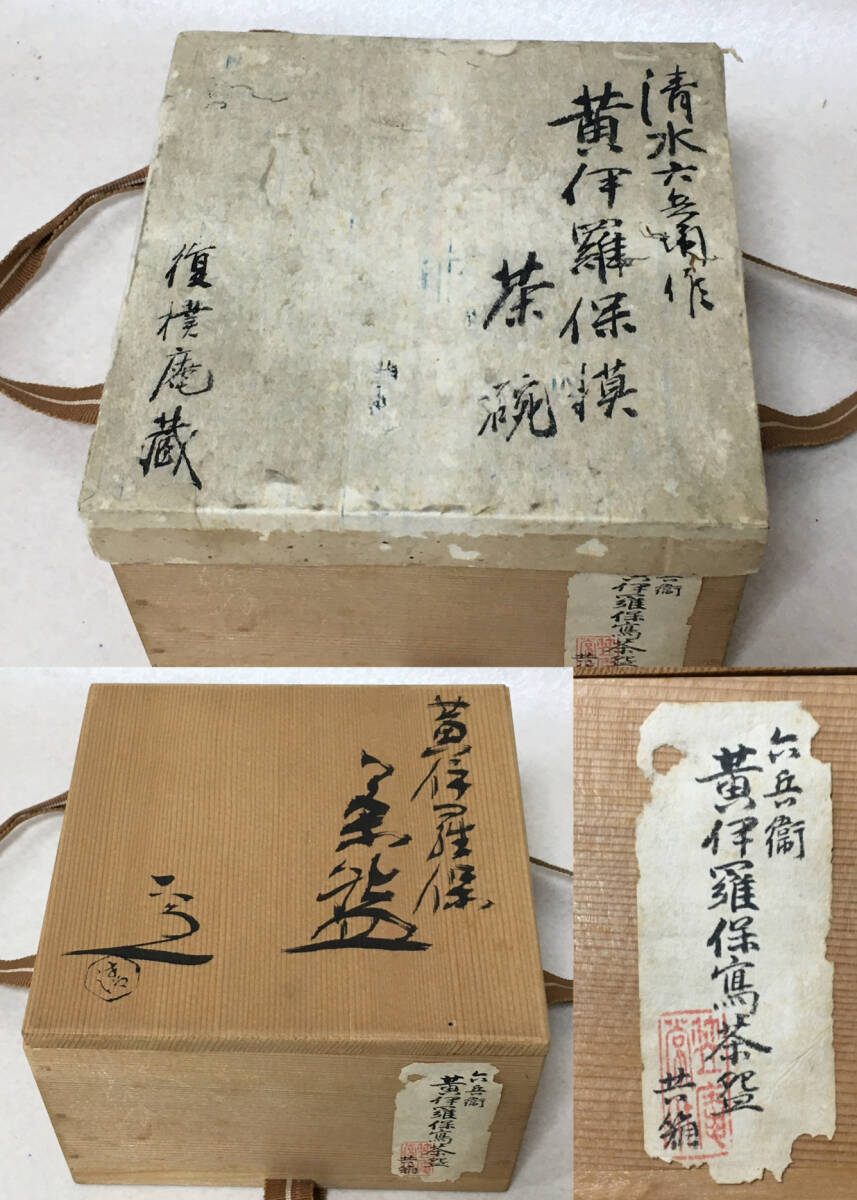 清水六兵衛作
黄伊羅保模
茶碗
復樸庵蔵
兵衞
黄伊羅保寫茶盌
共
黄伊羅保
茶盌
六兵衞
黄伊羅保寫茶盌
共箱
六兵衞
黄伊羅保寫茶盌
共箱